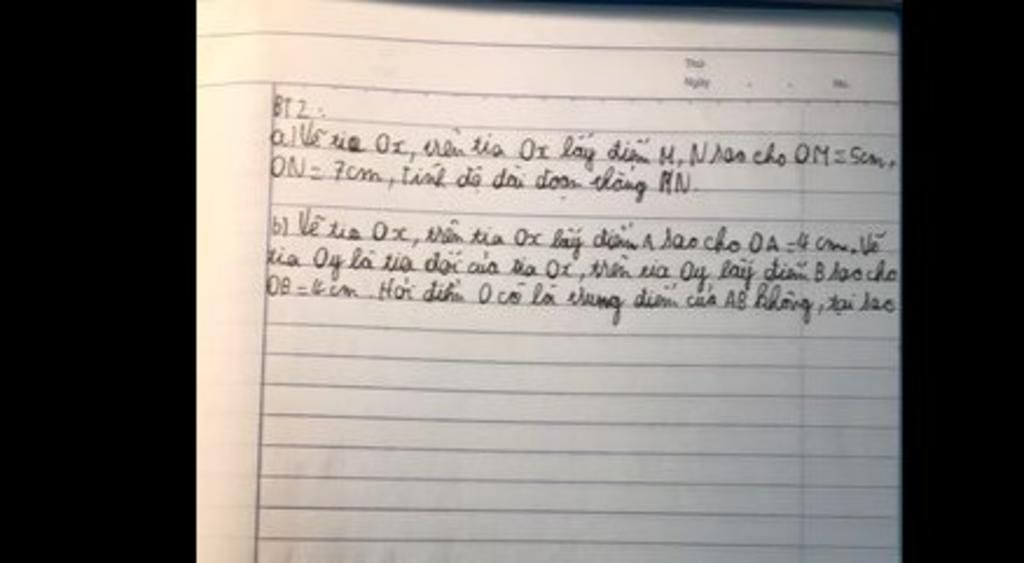 Thứ
Ngày . . No.
BT 2:
a) Vẽ tia Ox, trên tia Ox lấy điểm M, N sao cho OM = 5cm,
ON = 7cm, tính độ dài đoạn thẳng MN.
b) Vẽ tia Ox, trên tia Ox lấy điểm A sao cho OA = 4 cm. Vẽ
tia Oy là tia đối của tia Ox, trên tia Oy lấy điểm B sao cho
OB = 4 cm. Hỏi điểm O có là trung điểm của AB không, tại sao